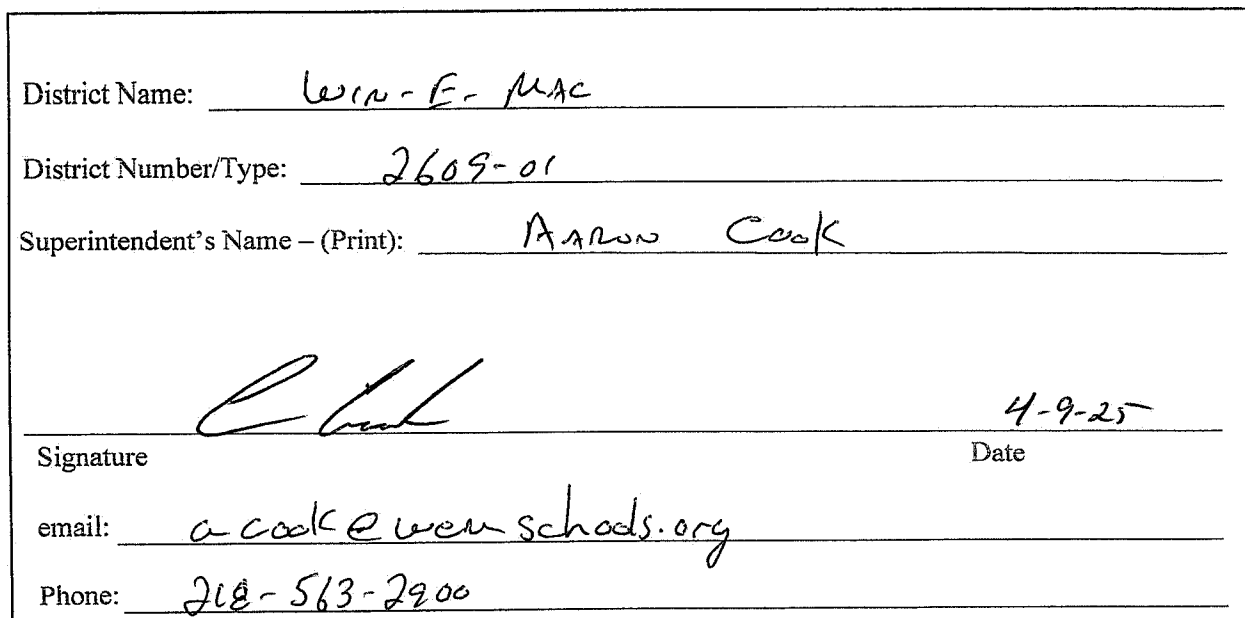 District Name: WIN-E-MAC
District Number/Type: 2609-01
Superintendent's Name – (Print): AARON COOK
4-9-25
Signature Date
email: acook@wemschools.org
Phone: 218-563-2900